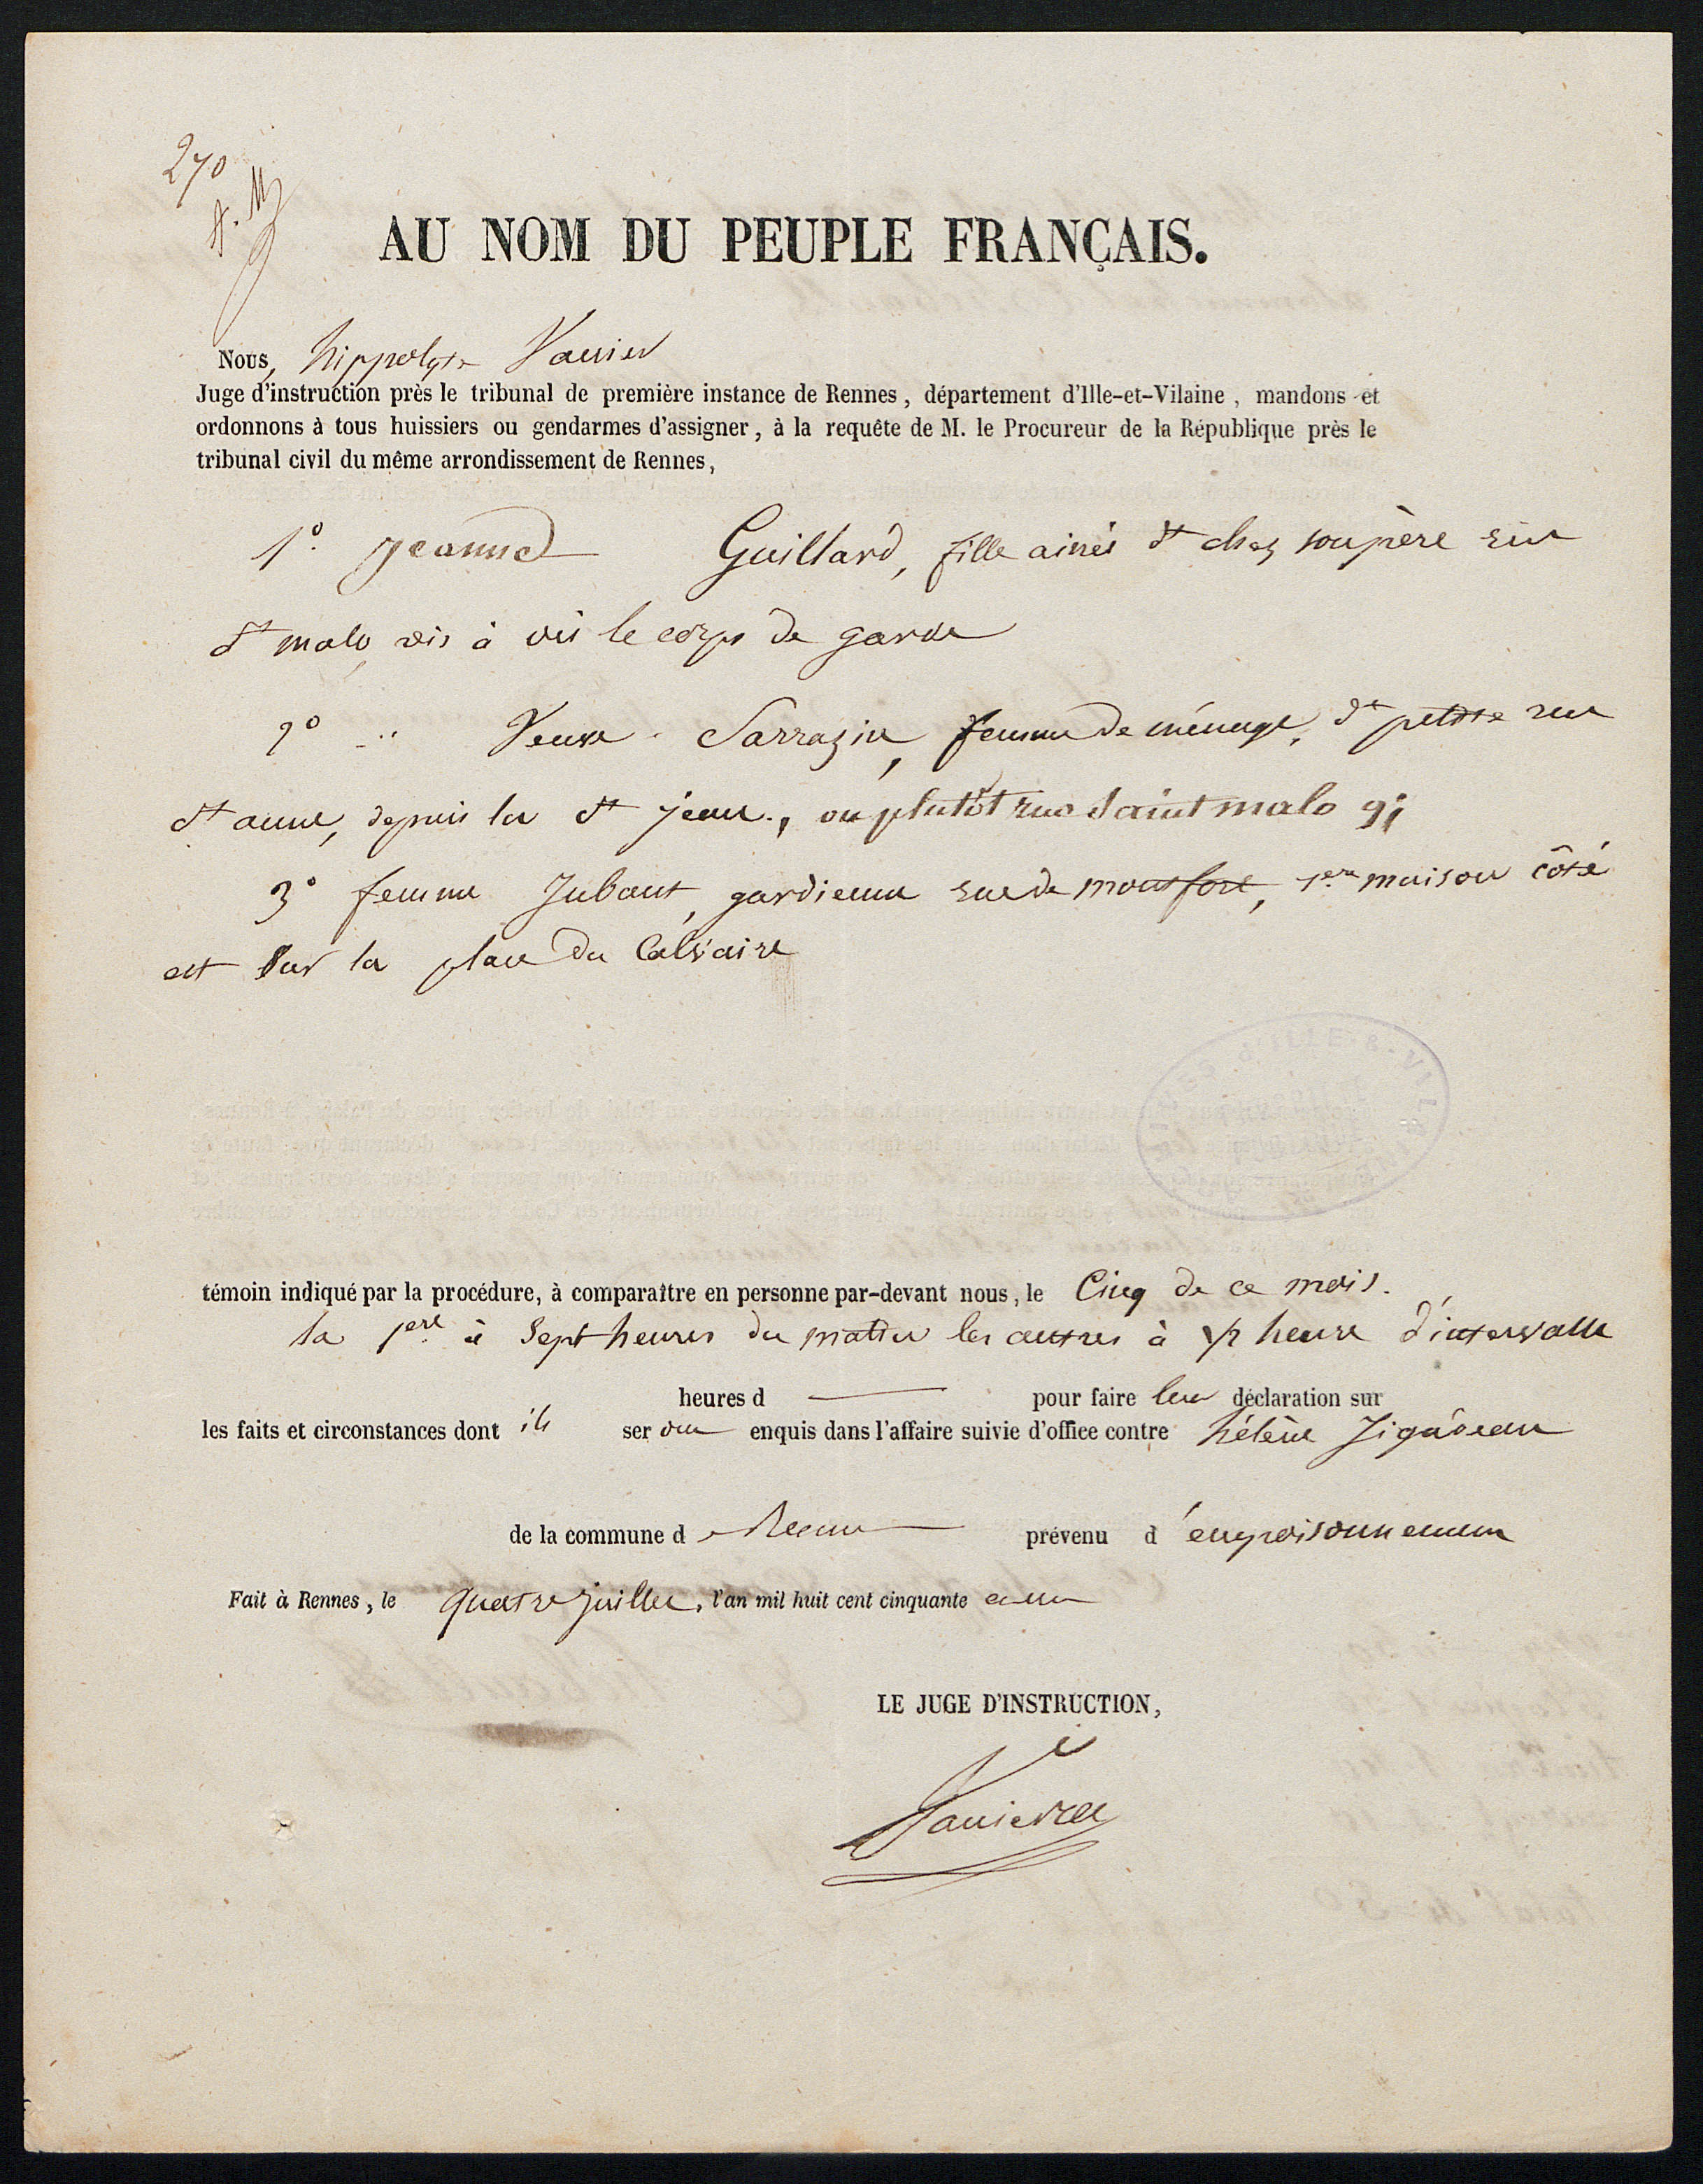 270
AU NOM DU PEUPLE FRANÇAIS.
Nous, hippolyte Vannier
Juge d'instruction près le tribunal de première instance de Rennes, département d'Ille-et-Vilaine, mandons et
ordonnons à tous huissiers ou gendarmes d'assigner, à la requête de M. le Procureur de la République près le
tribunal civil du même arrondissement de Rennes,
1° jeanne Guillard, fille ainée dt chez son père rue
St malo vis à vis le corps de garde
2° Veuve Sarrazin, femme de ménage, dt petite rue
St anne, depuis la St jean., ou plutôt rue Saint malo 9;
3° femme Jubaut, gardienne rue de montfort, 1ere maison côté
est sur la place du Calvaire
témoin indiqué par la procédure, à comparaître en personne par-devant nous, le Cinq de ce mois.
la 1ere à Sept heures du matin les autres à 1/2 heure d'intervalle
heures d — pour faire leur déclaration sur
les faits et circonstances dont ils seront enquis dans l'affaire suivie d'office contre hélène Jégadeau
de la commune d Rennes prévenu d'empoisonnement
Fait à Rennes, le quatre juillet, l'an mil huit cent cinquante et un
LE JUGE D'INSTRUCTION,
Vannier